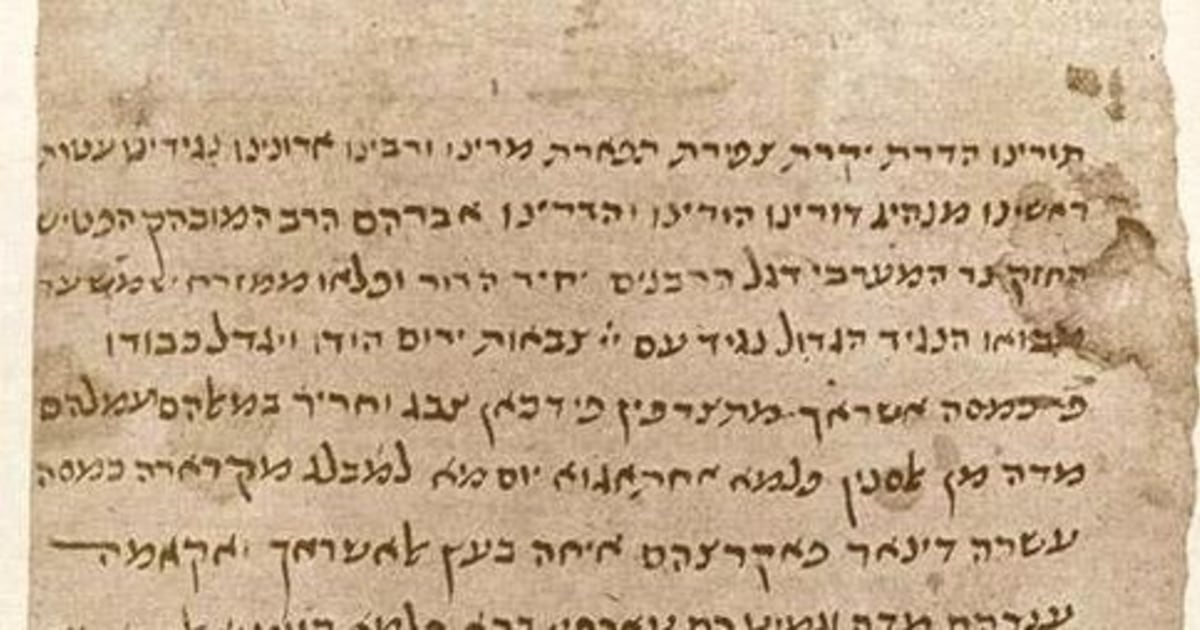 תורינו הדרת יקרת צפירת תפארת מרינו ורבינו אדונינו נגידינו עטרת
ראשינו מנהיג דורינו הודינו והדרינו אברהם הרב המובהק הפטיש
החזק נר המערבי דגל הרבנים יחיד הדור ופלאו ממזרח שמש עד
מבואו הנגיד הגדול נגיד עם ייי צבאות ירום הודו ויגדל כבודו
פי כמסה אשראך מתצרפין פי דכאן צבג וחריר במאלהם ועמלהם
מדה מן אלסנין פלמא אחתאגוא יום מא למבלג מקדארה כמסה
עשרה דינאר פאקרצהם איאה בעץ אלאשראך ואקאמה
ענדהם מדה